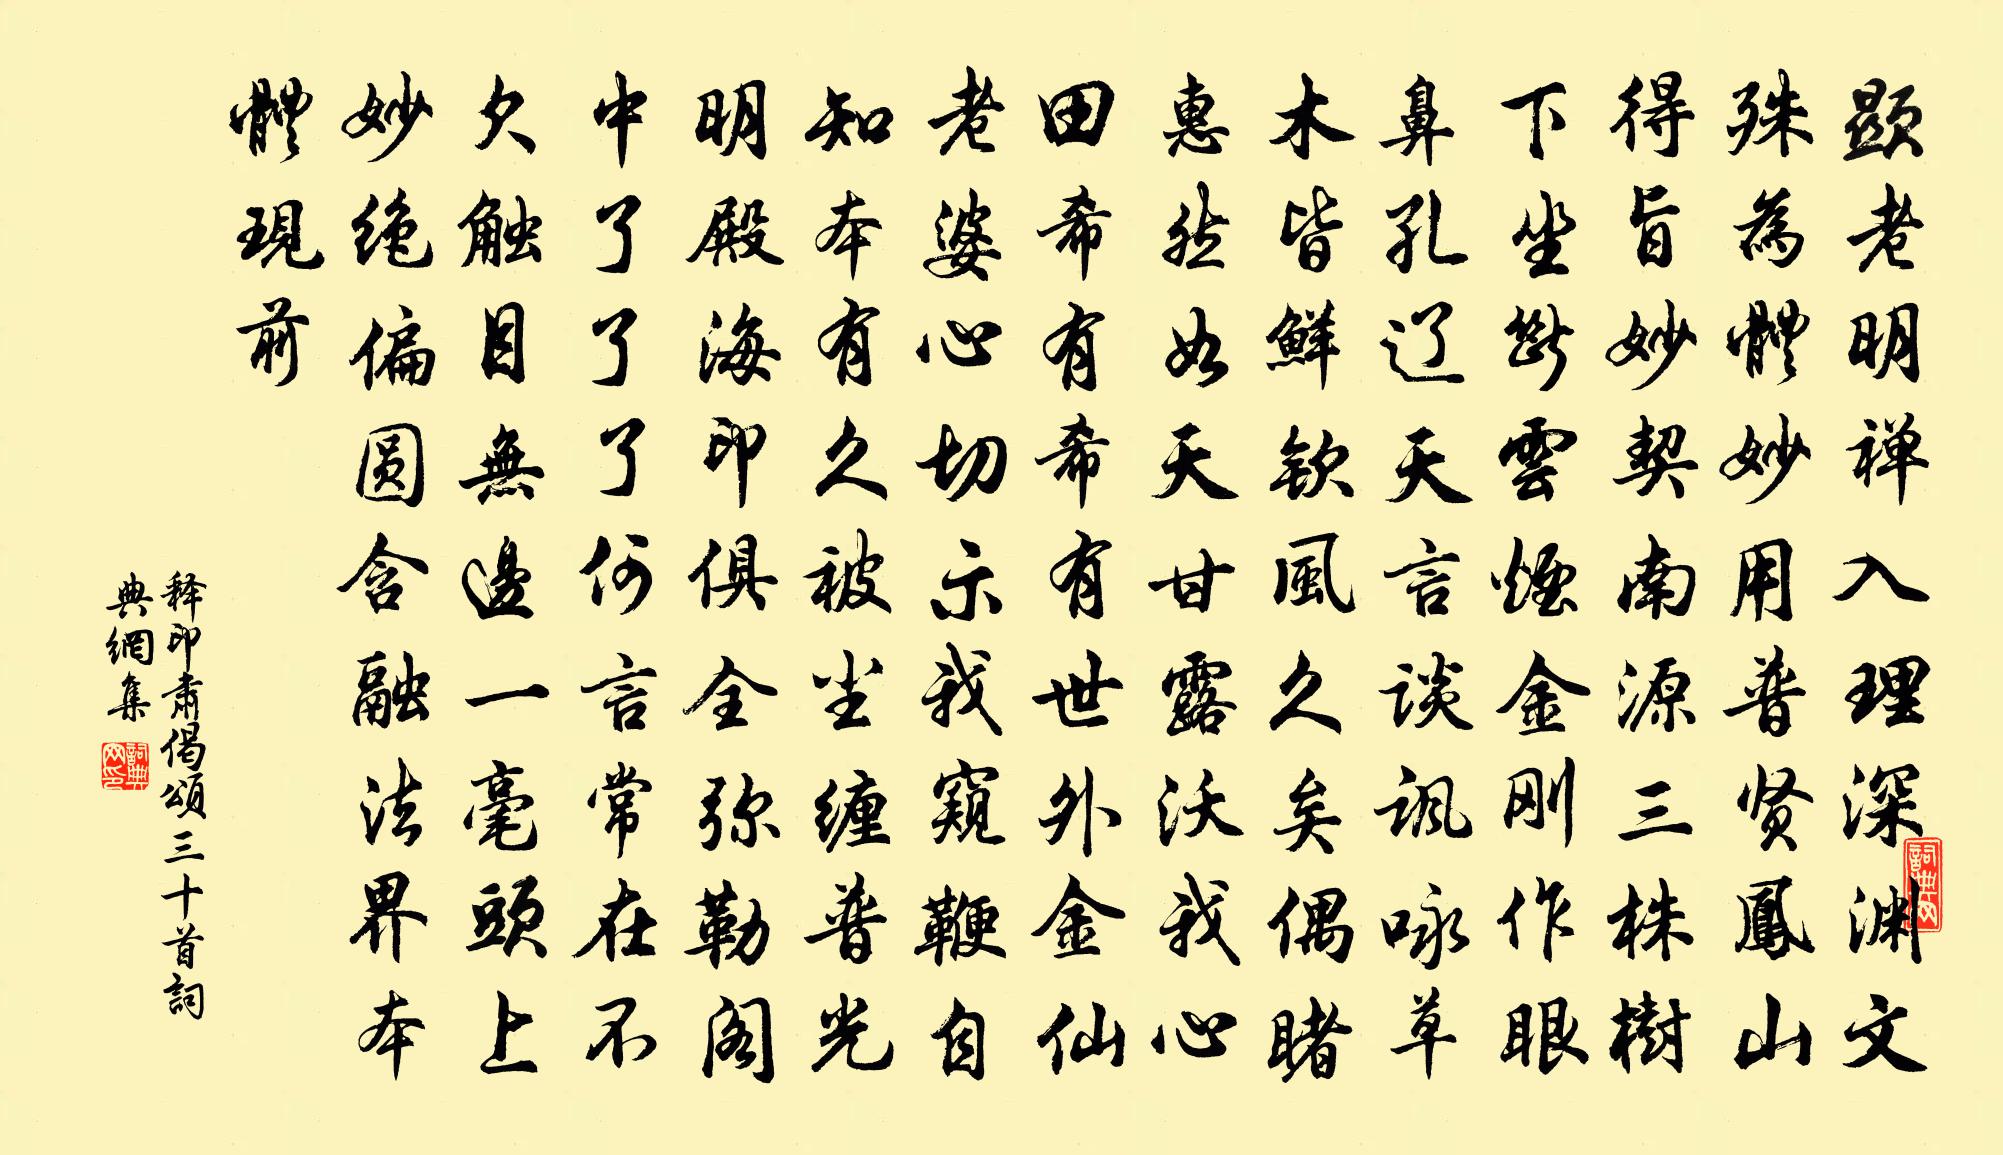 顕老明禅入理深渊文
殊為體妙用普贤鳳山
得旨妙契南源三株樹
下坐斷雲煙金刚作眼
鼻孔辽天言谈讽咏草
木皆鮮钦風久矣偶睹
惠然如天甘露沃我心
田希有希有世外金仙
老婆心切示我窺鞭自
知本有久被尘缠普光
明殿海印俱全弥勒阁
中了了了何言常在不
欠触目無邊一毫頭上
妙绝偏圆含融法界本
體現前
释印肃偈頌三十首詞
典網集
詞典网
詞典网印